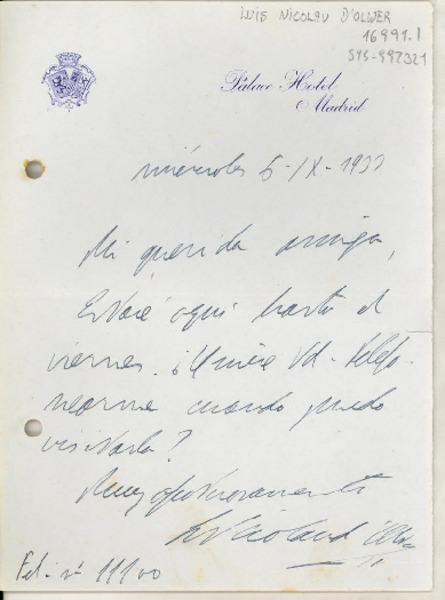 LUIS NICOLAU D'OLWER
16991.1
SYS-997321
Palace Hotel
Madrid
miércoles 6-IX-1933
Mi querida amiga,
Estaré aquí hasta el
viernes. ¿Quiere Vd. telefo-
nearme cuando puedo
visitarla?
Muy afectuosamente
L. Nicolau d'Olwer
Tel. nº 11100